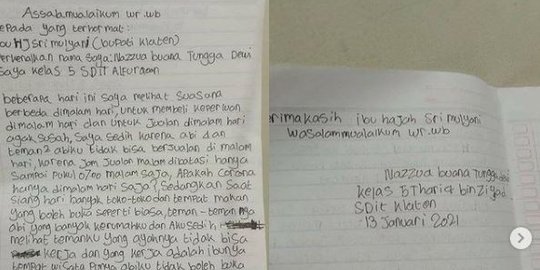 Assalamualaikum wr.wb
epada yang terhormat:
bu HJ Sri mulyani (bupati Klaten)
Perkenalkan nama saya: Nazzua buana Tungga Dewi
Saya kelas 5 SDIT Alfuraqan
beberapa hari ini saya melihat Suasana
berbeda dimalam hari, untuk membeli keperluan
dimalam hari dan untuk Jualan dimalam hari
agak susah, Saya sedih karena abi dan
teman² abiku tidak bisa berjualan di malam
hari, karena Jam Jualan malam dibatasi hanya
sampai pukul 07.00 malam saja, Apakah Corona
hanya dimalam hari saja? Sedangkan Saat
siang hari banyak toko-toko dan tempat makan
yang boleh buka seperti biasa, teman-teman
abi yang banyak kerumahku dan Aku sedih
melihat temanku yang ayahnya tidak bisa
kerja dan yang kerja adalah ibunya
tempat wisata punya abiku tidak boleh buka
rimakasih ibu hajah Sri mulyani
wasalammualaikum wr.wb
Nazzua buana Tungga dewi
kelas 5 Thariq bin Ziyad
SDit Klaten
13 Januari 2021